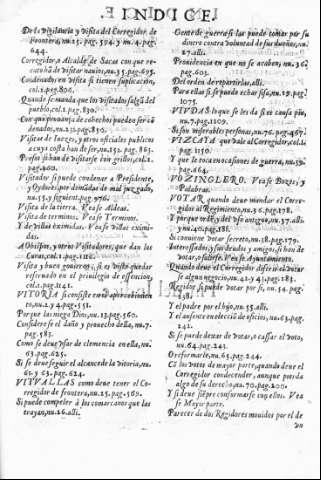 INDICE.
De la vigilancia y visita del Corregidor de
frontera, nu.25. pag.594. y nu.4. pag.
644.
Corregidor, o Alcalde de Sacas con que re-
visitar navios, nu.35. pag.695.
Condenados en visita si tienen suplicacion,
col.2. pag.806.
Quando se manda que los visitados salgā del
pueblo, col.1. pag.830.
Con que provança de cohechos puedē ser cō
denados, nu.213. pag.830.
Visitas de luezes, y otros oficiales publicos
a cuya costa han de ser, nu.252. pag.863.
pag.400.
Visitador si puede condenar a Presidente,
y Oydores por demasias de mal juzgado,
nu.15. y siguient. pag.976.
Visita de la tierra. Vease Aldeas.
Visita de terminos. Vease Terminos.
Y de villas eximidas. Vease villas eximi-
das.
A Obispos, y otros Visitadores, que dan los
Curas, col.1. pag.1126.
Visita y buen govierno, si es visto quedar
refervado en el privilegio de essencion,
col.2. pag.1141.
VITORIA si consiste en
to, nu.2. y 4. pag.551.
Porque las niega Dios, nu.13. pag.560.
Considerese el daño y provecho della, nu.7.
pag.583.
Como se deve usar de clemencia en ella, nu.
63. pag.625.
Si se deve seguir el alcance de la vitoria, nu.
61. y 63. pag.624.
VITVALLAS como deve tener el Cor-
regidor de frontera, nu.25. pag.569.
Si puede compeler à los comarcanos que las
trayan, nu.26. alli.
Gente de guerra si las puede tomar por su
dinero contra voluntad de sus dueños, nu.
27. alli.
Providencia en que no se acaben, nu.36.
pag.603.
Del orden de repartirlas, alli.
Para ellas si se puede echar sisa, nu.19. pag.
1075.
VIVDAS lo que se les da si es causa pia,
nu.7. pag.1109.
Si son miserables personas, nu.76. pag.467.
VIZCAYA que vale al Corregidor, col.1.
pag.1150.
Y que le toca en ocasiones de guerra, nu.59.
pag.464.
VOZINGLERO. Vease Bozes, y
Palabras.
VOTAR quando deve mandar el Corre-
gidor al Regimiento, nu.36. pag.178.
y nu.40. pag.181.
Si conviene votar secreto, nu.38. pag.179.
Interessados, y sus deudos, y amigos, si han de
votar, o salirse. Vease Ayuntamiento.
Quando deve el Corregidor dezir si es licito
salirse alguno, nu.41. y 42. pag.183.
Regidor si puede votar por si, nu.54. pag.
Y el padre por el hijo, nu.25. alli.
Y el ausente en elecciō de oficios, nu.63. pag.
241.
Si se puede dexar de votar, o cassar el voto,
nu.64. pag.242.
O reformarle, nu.65. pag.244.
Cō los votos de mayor parte, quando deve el
Corregidor condecender, aunque pierda
algo de su derecho, nu.70. pag.200.
Y si deve siēpre conformarse cuy ellos. Vea
se Mayor parte.
Parecer de dos Regidores movidos por el de
un